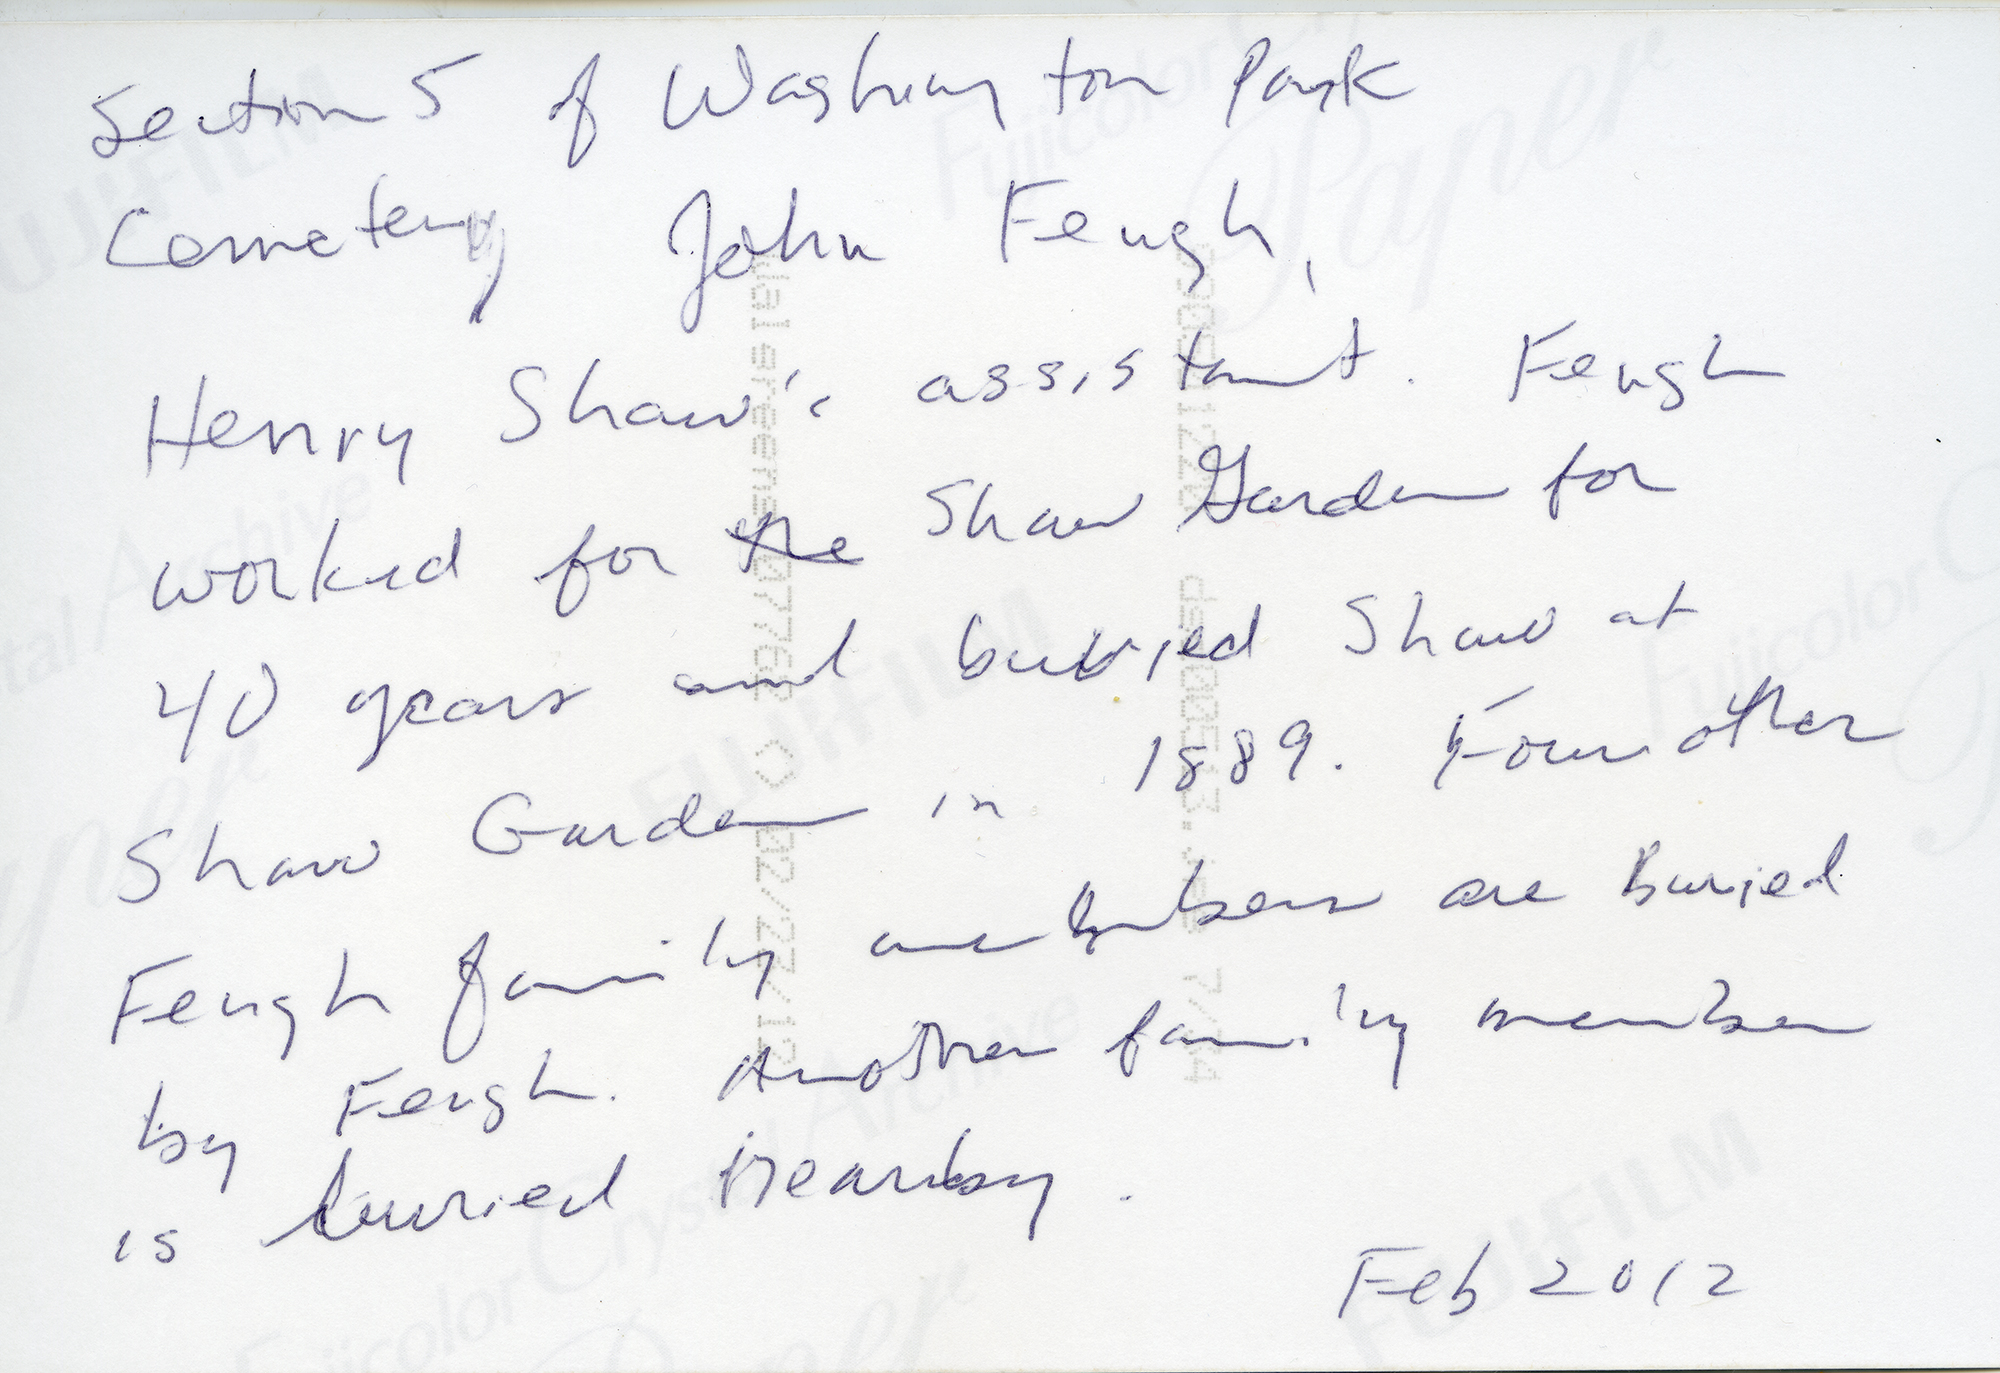 Section 5 of Washington Park
Cemetery John Feugh,
Henry Shaw's assistant. Feugh
worked for the Shaw Garden for
40 years and buried Shaw at
Shaw Garden in 1889. Four other
Feugh family members are Buried
by Feugh. Another family member
is buried nearby.
Feb 2012
FUJIFILM
Fujicolor Crystal Archive
Paper